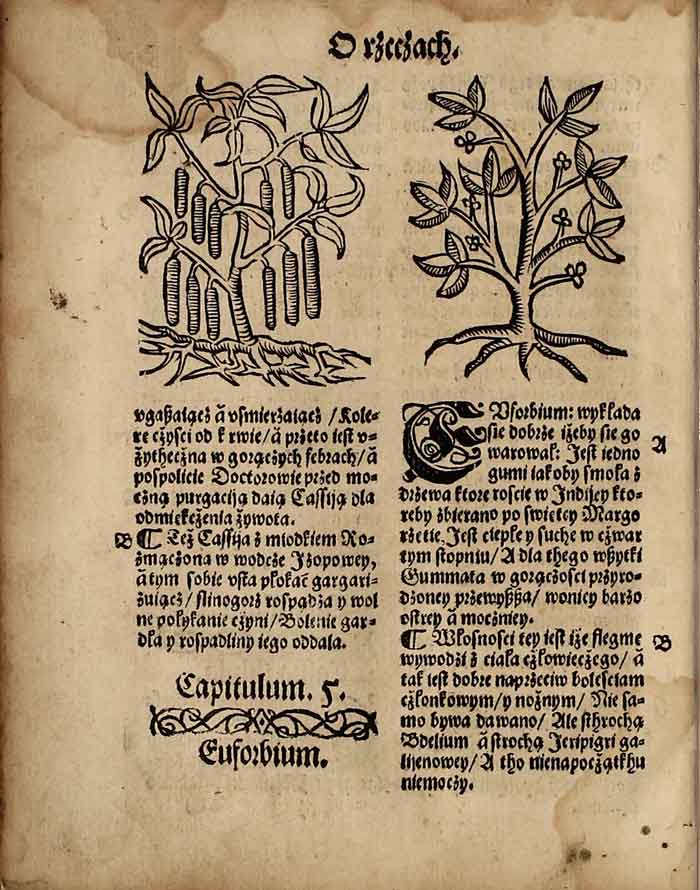 O rzeczach.
vgaßaiącż ā vsmierzaiącż / Kole⸗
rę czyści od krwie / ā przeto iest v⸗
żytheczna w gorączych febrach / ā
pospolicie Doctorowie przed mo⸗
czną purgacyią daią Cassiją dla
odmiękczenia żywota.
B ¶ Też Cassija z miodkiem Ro⸗
zmączona w wodcze Izopowey,
ā tym sobie vsta płokać gargari⸗
zuiącż / slinogorz rospądza y wol
ne połykanie czyni / Bolenie gar⸗
dła y rospadliny iego oddala.
Capitulum. 5.
Euforbium.
EVforbium: wykłada
się dobrze iżeby się go
warowak: Jest iedno A
gumi iakoby smoła z
drzewa ktore roscie w Indijey kto⸗
reby zbierano po swiętey Margo
rzetie, Jest ciepłe y suche w czwar
tym stopniu / A dla thego wßytki
Gummata w gorączości przyro⸗
dzoney przewyßßa / woniey barzo
ostrey ā moczniey.
¶ Własności tey iest iże flegmę B
wywodzi z ciała człowieczego / ā
tak iest dobre naprzeciw bolesciam
członkowym / y nożnym / Nie sa⸗
mo bywa dawano / Ale sthrochą
Bdelium ā strochą Jeripigri ga⸗
lijenowey / A tho nienapoczątkhu
niemoczy.